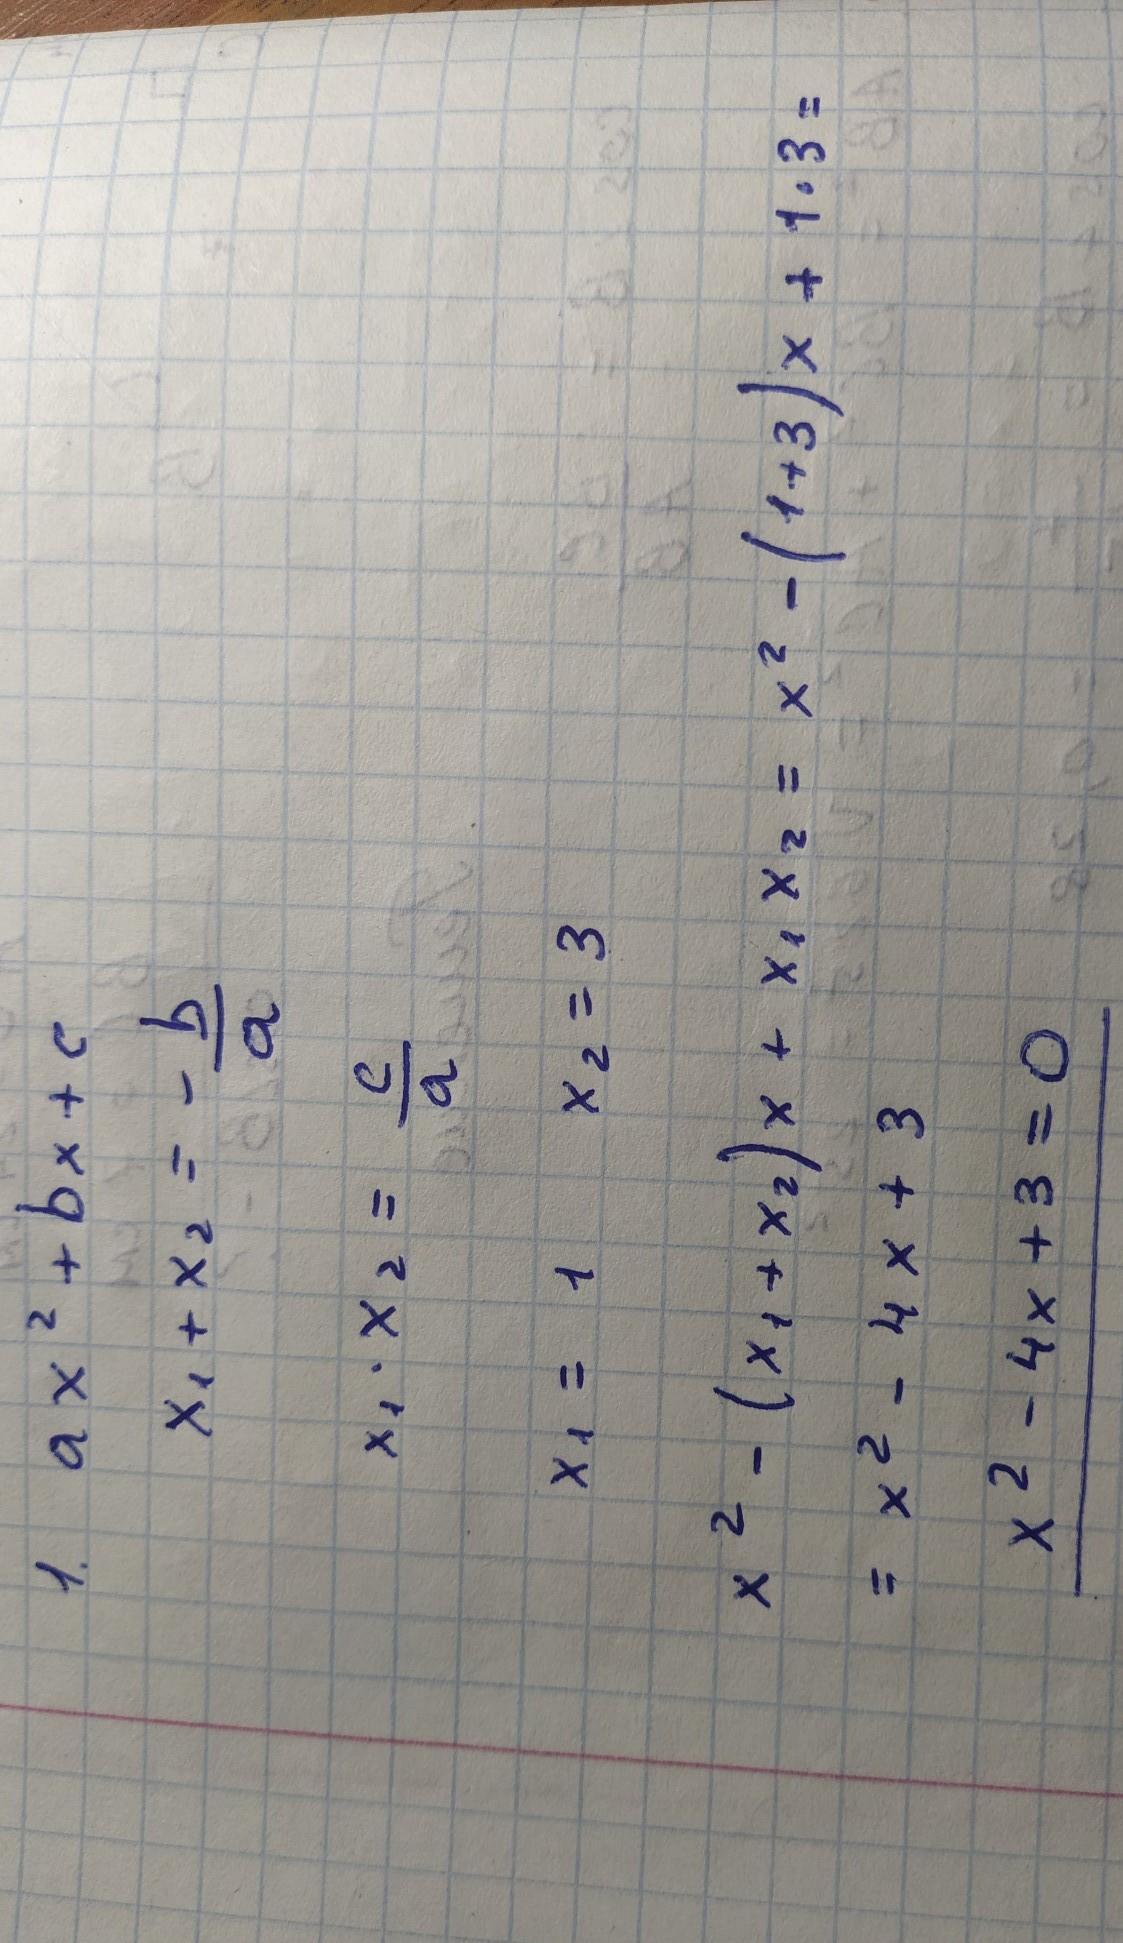 1. ax² + bx + c
x₁ + x₂ = - b/a
x₁ · x₂ = c/a
x₁ = 1 x₂ = 3
x² - (x₁ + x₂)x + x₁x₂ = x² - (1+3)x + 1·3 =
= x² - 4x + 3
x² - 4x + 3 = 0